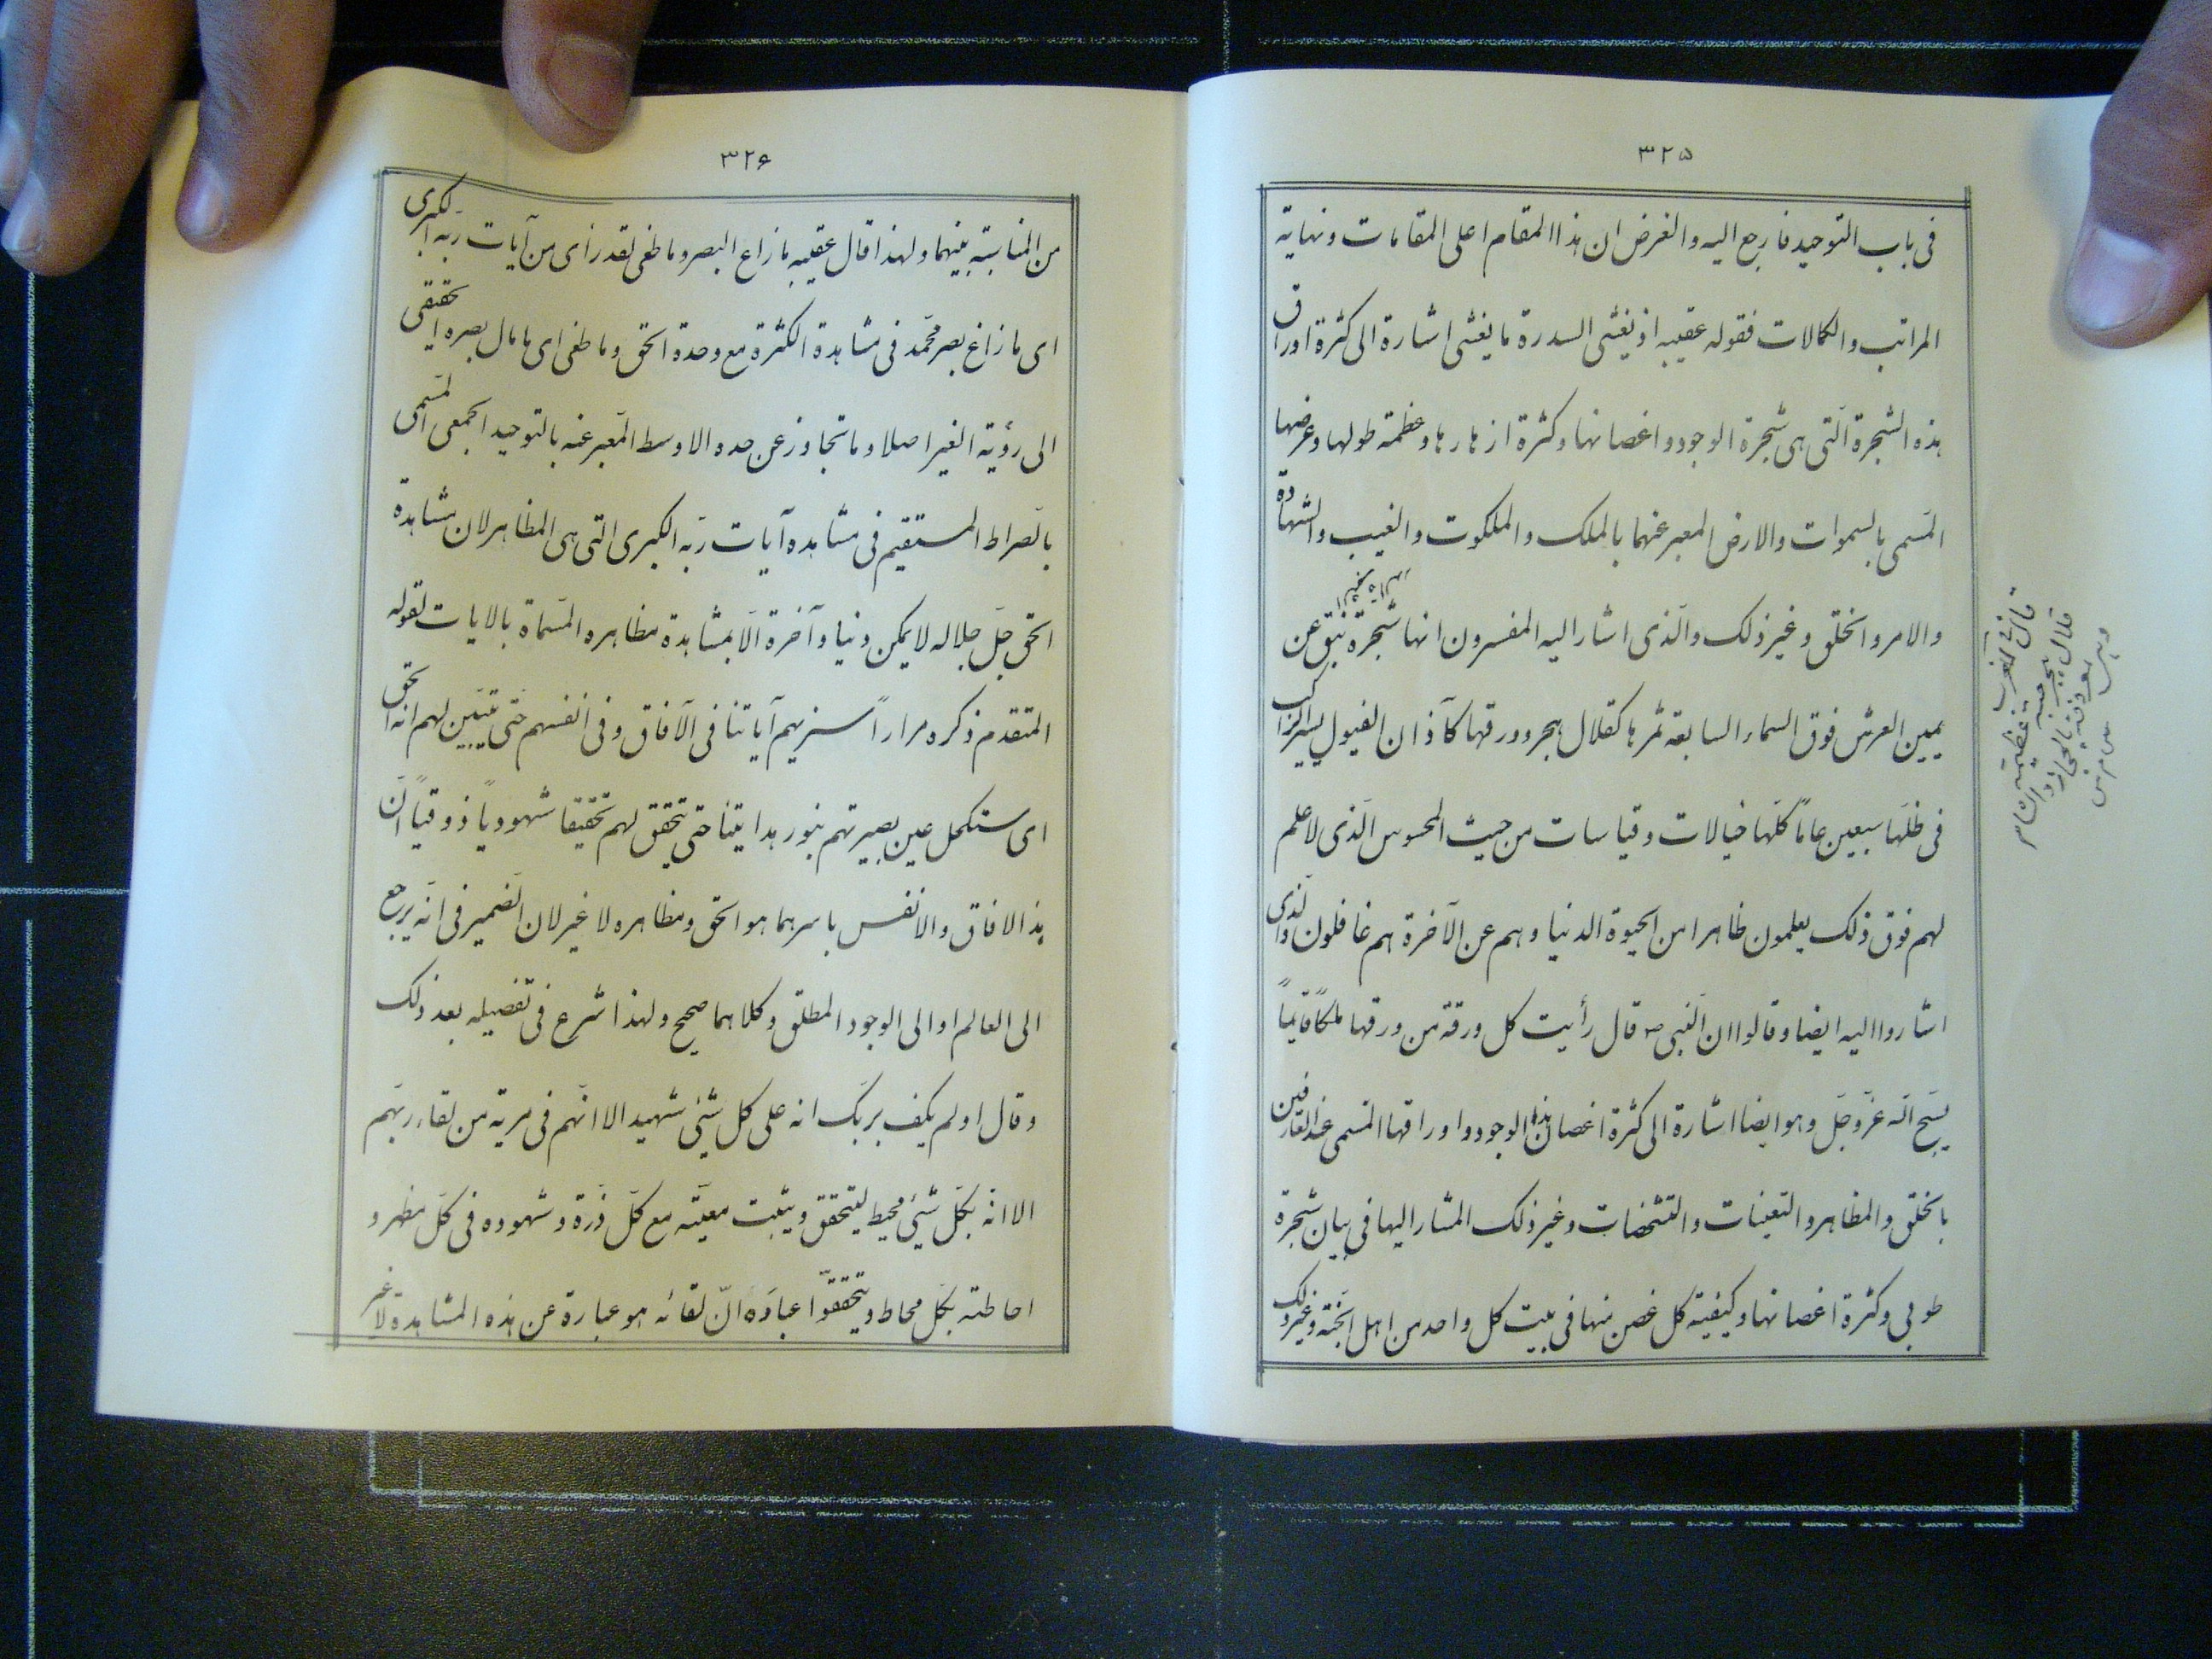 ۳۲۵
فی باب التوحید فارجع الیه والغرض ان هذا المقام اعلی المقامات ونهایة
المراتب والکمالات فقوله عقیبه اذ یغشی السدرة ما یغشی اشارة الی کثرة اوراق
هذه الشجرة الّتی هی شجرة الوجود واغصانها وکثرة ازهارها وعظمة طولها وعرضها
المسمی بالسموات والارض المعبر عنهما بالملک والملکوت والغیب والشهادة
والامر والخلق وغیر ذلک والّذی اشار الیه المفسرون انها شجرة نبق عن
یمین العرش فوق السماء السابعه ثمرها کقلال هجر وورقها کآذان الفیول یسیر الراکب
فی ظلّها سبعین عاماً کلّها خیالات وقیاسات من حیث المحسوس الّذی لا علم
لهم فوق ذلک یعلمون ظاهرا من الحیوة الدنیا وهم عن الآخرة هم غافلون والّذی
اشاروا الیه ایضا وقالوا ان النّبی ص قال رأیت کل ورقة من ورقها ملکاً قایماً
یسبّح الله عزّ وجلّ وهو ایضا اشارة الی کثرة اغصان هذا الوجود واوراقها المسمی عند العارفین
بالخلق والمظاهر والتعینات والتشخصات وغیر ذلک المشار الیها فی بیان شجرة
طوبی وکثرة اغصانها وکیفیة کل غصن منها فی بیت کل واحد من اهل الجنّة وغیر ذلک
۳۲۶
من المناسبة بینهما ولهذا قال عقیبه ما زاغ البصر وما طغی لقد رأی من آیات ربّه الکبری
ای ما زاغ بصر محمّد فی مشاهدة الکثرة مع وحدة الحق وما طغی ای ما مال بصره الحقیقی
الی رؤیة الغیر اصلا وما تجاوز عن حده الاوسط المعبّر عنه بالتوحید الجمعی المسمّی
بالصّراط المستقیم فی مشاهده آیات ربّه الکبری التی هی المظاهر لان مشاهدة
الحق جلّ جلاله لا یمکن دنیا وآخرة الّا بمشاهدة مظاهره المسمّاة بالایات لقوله
المتقدم ذکره مراراً سنریهم آیاتنا فی الآفاق وفی انفسهم حتّی یتبیّن لهم انّه الحق
ای سنکحل عین بصیرتهم بنور هدایتنا حتی یتحقق لهم تحقیقا شهودیاً ذوقیاً انّ
هذا الافاق والانفس باسرهما هو الحق ومظاهره لا غیر لان الضمیر فی انّه یرجع
الی العالم او الی الوجود المطلق وکلاهما صحیح ولهذا شرع فی تفصیله بعد ذلک
وقال اولم یکف بربّک انه علی کل شیئ شهید الا انّهم فی مریة من لقاء ربّهم
الا انّه بکلّ شیئ محیط لیتحقق ویثبت معیّته مع کلّ ذرّة وشهوده فی کلّ مظهر و
احاطته بکلّ محاط ویتحققوا عباده انّ لقائه هو عبارة عن هذه المشاهدة لا غیر